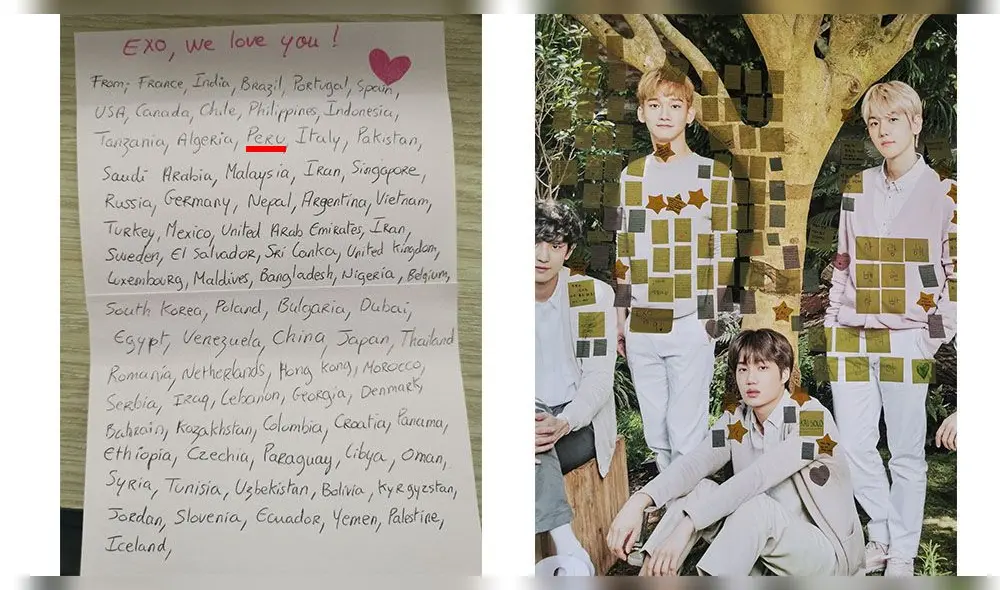 EXO, we love you!
From; France, India, Brazil, Portugal, Spain,
USA, Canada, Chile, Philippines, Indonesia,
Tanzania, Algeria, Peru, Italy, Pakistan,
Saudi Arabia, Malaysia, Iran, Singapore,
Russia, Germany, Nepal, Argentina, Vietnam,
Turkey, Mexico, United Arab Emirates, Iran,
Sweden, El Salvador, Sri Lanka, United Kingdom,
Luxembourg, Maldives, Bangladesh, Nigeria, Belgium,
South Korea, Poland, Bulgaria, Dubai,
Egypt, Venezuela, China, Japan, Thailand
Romania, Netherlands, Hong Kong, Morocco,
Serbia, Iraq, Lebanon, Georgia, Denmark,
Bahrain, Kazakhstan, Columbia, Croatia, Panama,
Ethiopia, Czechia, Paraguay, Libya, Oman,
Syria, Tunisia, Uzbekistan, Bolivia, Kyrgyzstan,
Jordan, Slovenia, Ecuador, Yemen, Palestine,
Iceland,